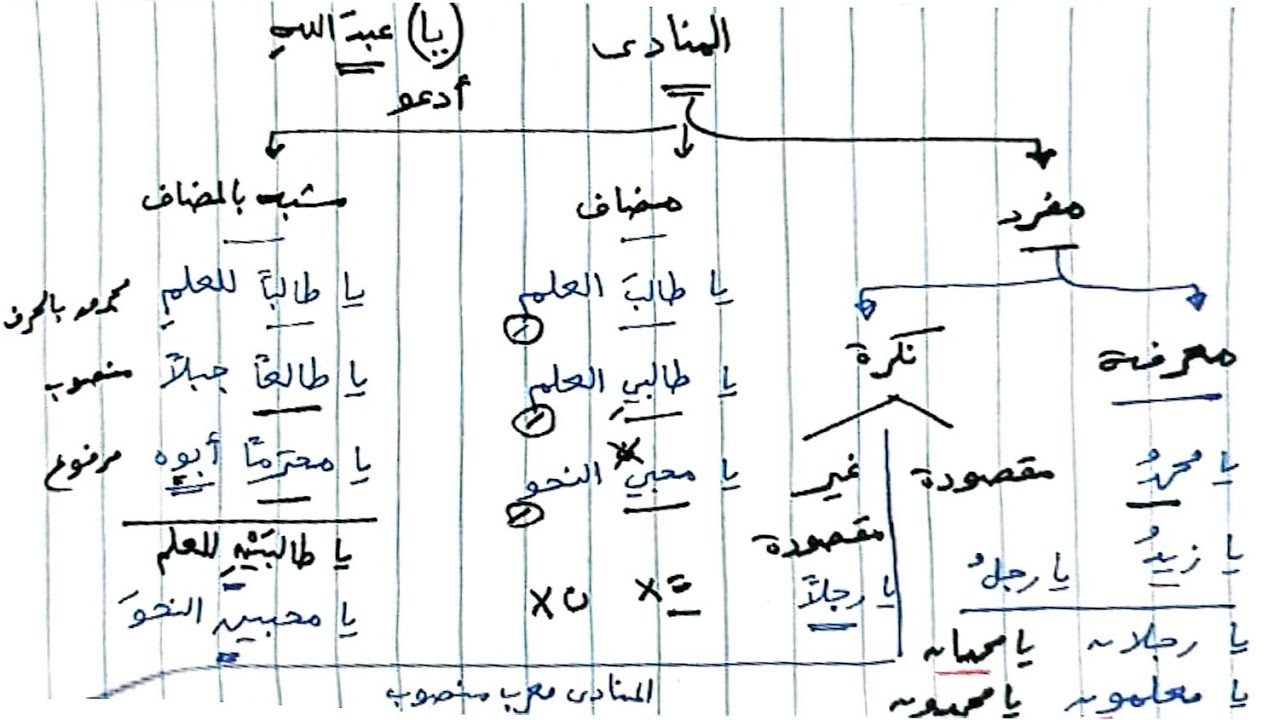 المنادى
(يا) عبدَ اللهِ
أدعو
مفرد
مضاف
مشبه بالمضاف
معرفة
نكرة
يا محمدُ
يا زيدُ
مقصودة
يا رجلُ
يا رجلان
يا محمدان
يا معلمون
يا محمدون
غير
مقصودة
يا رجلاً
يا طالبَ العلمِ
يا طالبي العلمِ
يا محبي النحوِ
ةً x ن x
يا طالباً للعلمِ مجرور بالحرف
يا طالعاً جبلاً منصوب
يا محترماً أبوه مرفوع
يا طالبَيْنِ للعلم
يا محبين النحوَ
المنادى معرب منصوب